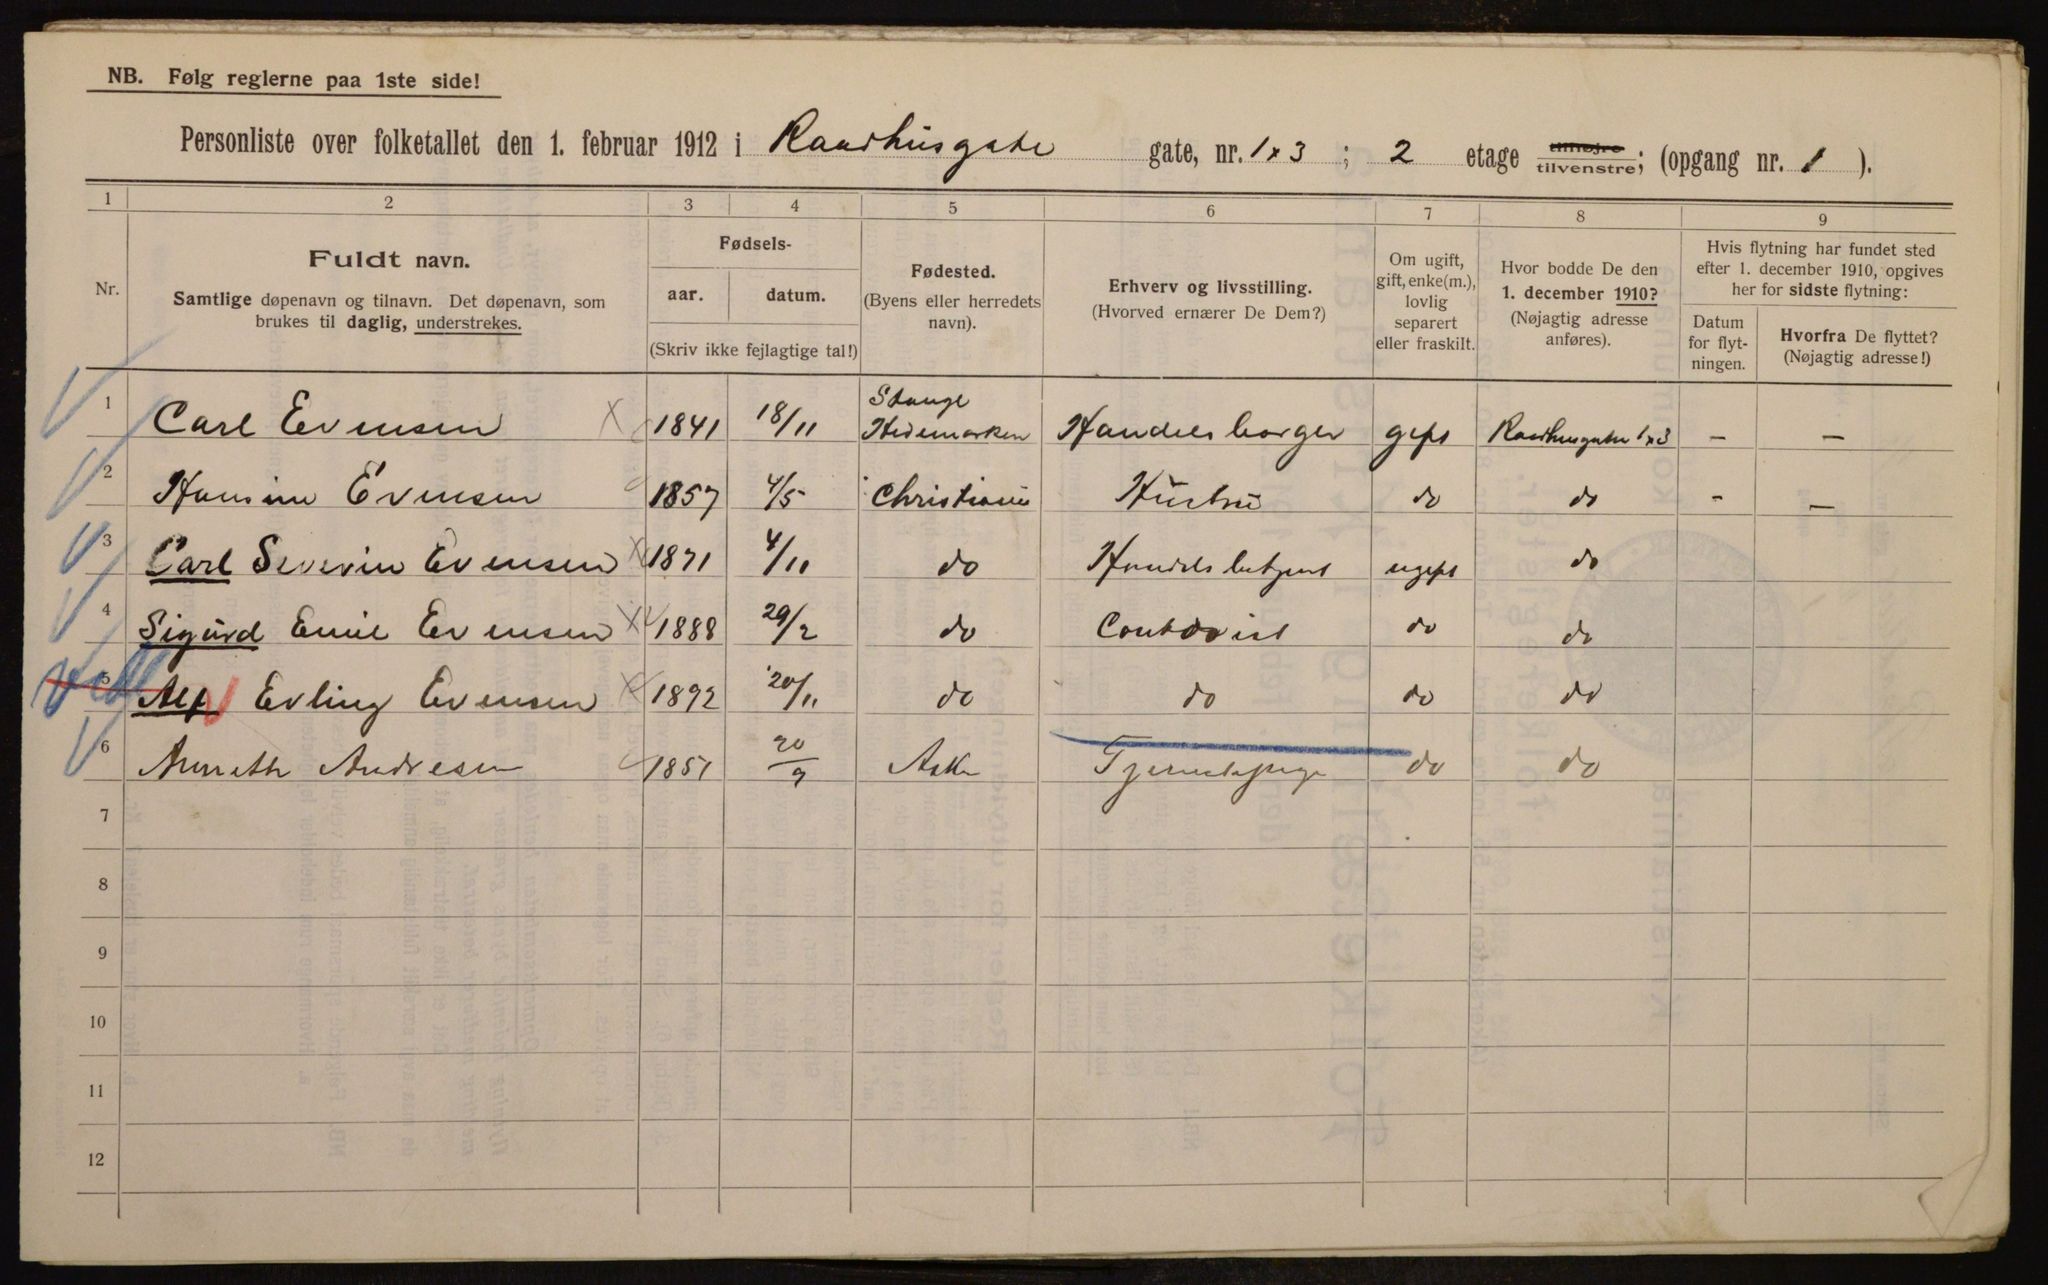 NB. Følg reglerne paa 1ste side!
Personliste over folketallet den 1. februar 1912 i Raadhusgate gate, nr. 1 x 3 ; 2 etage tilhøjre tilvenstre; (opgang nr. 1 ).
1 2 3 4 5 6 7 8 9
Nr.
Fuldt navn.
Samtlige døpenavn og tilnavn. Det døpenavn, som
brukes til daglig, understrekes.
Fødsels-
aar. datum.
(Skriv ikke fejlagtige tal!)
Fødested.
(Byens eller herredets
navn).
Erhverv og livsstilling.
(Hvorved ernærer De Dem?)
Om ugift,
gift, enke(m.),
lovlig
separert
eller fraskilt.
Hvor bodde De den
1. december 1910?
(Nøjagtig adresse
anføres).
Hvis flytning har fundet sted
efter 1. december 1910, opgives
her for sidste flytning:
Datum
for flyt-
ningen.
Hvorfra De flyttet?
(Nøjagtig adresse!)
1 Carl Evensen 1841 18/11 Stange Hedemarken Handelsborger gift Raadhusgaten 1 x 3 — —
2 Hansine Evensen 1857 4/5 Christiania Hustru do do - —
3 Carl Severin Evensen 1871 4/11 do Handelsbetjent ugift do
4 Sigurd Emil Evensen 1888 29/2 do Contorist do do
5 Alf Erling Evensen 1892 20/11 do do do do
6 Andresen 1851 20/9 Asker Tjenestepige do do
7
8
9
10
11
12